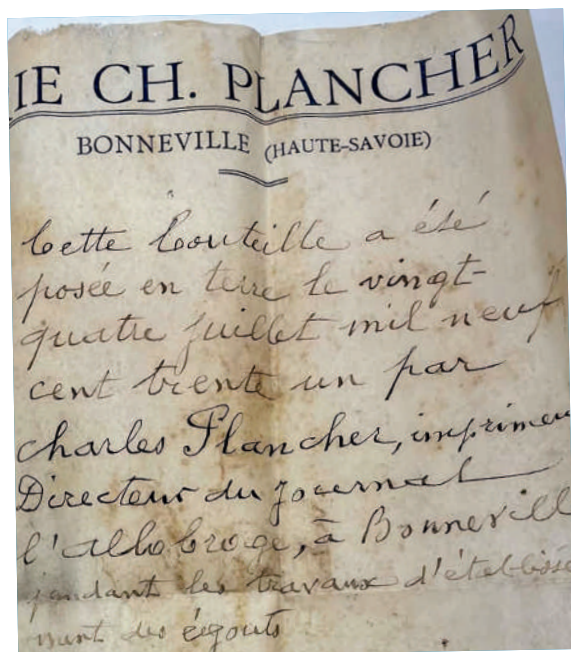 IE CH. PLANCHER
BONNEVILLE (HAUTE-SAVOIE)
Cette bouteille a été
posée en terre le vingt-
quatre juillet mil neuf
cent trente un par
Charles Plancher, imprimeu
Directeur du journal
l'Allobroge, à Bonnevill
pendant les travaux d'établisse
ment des égouts